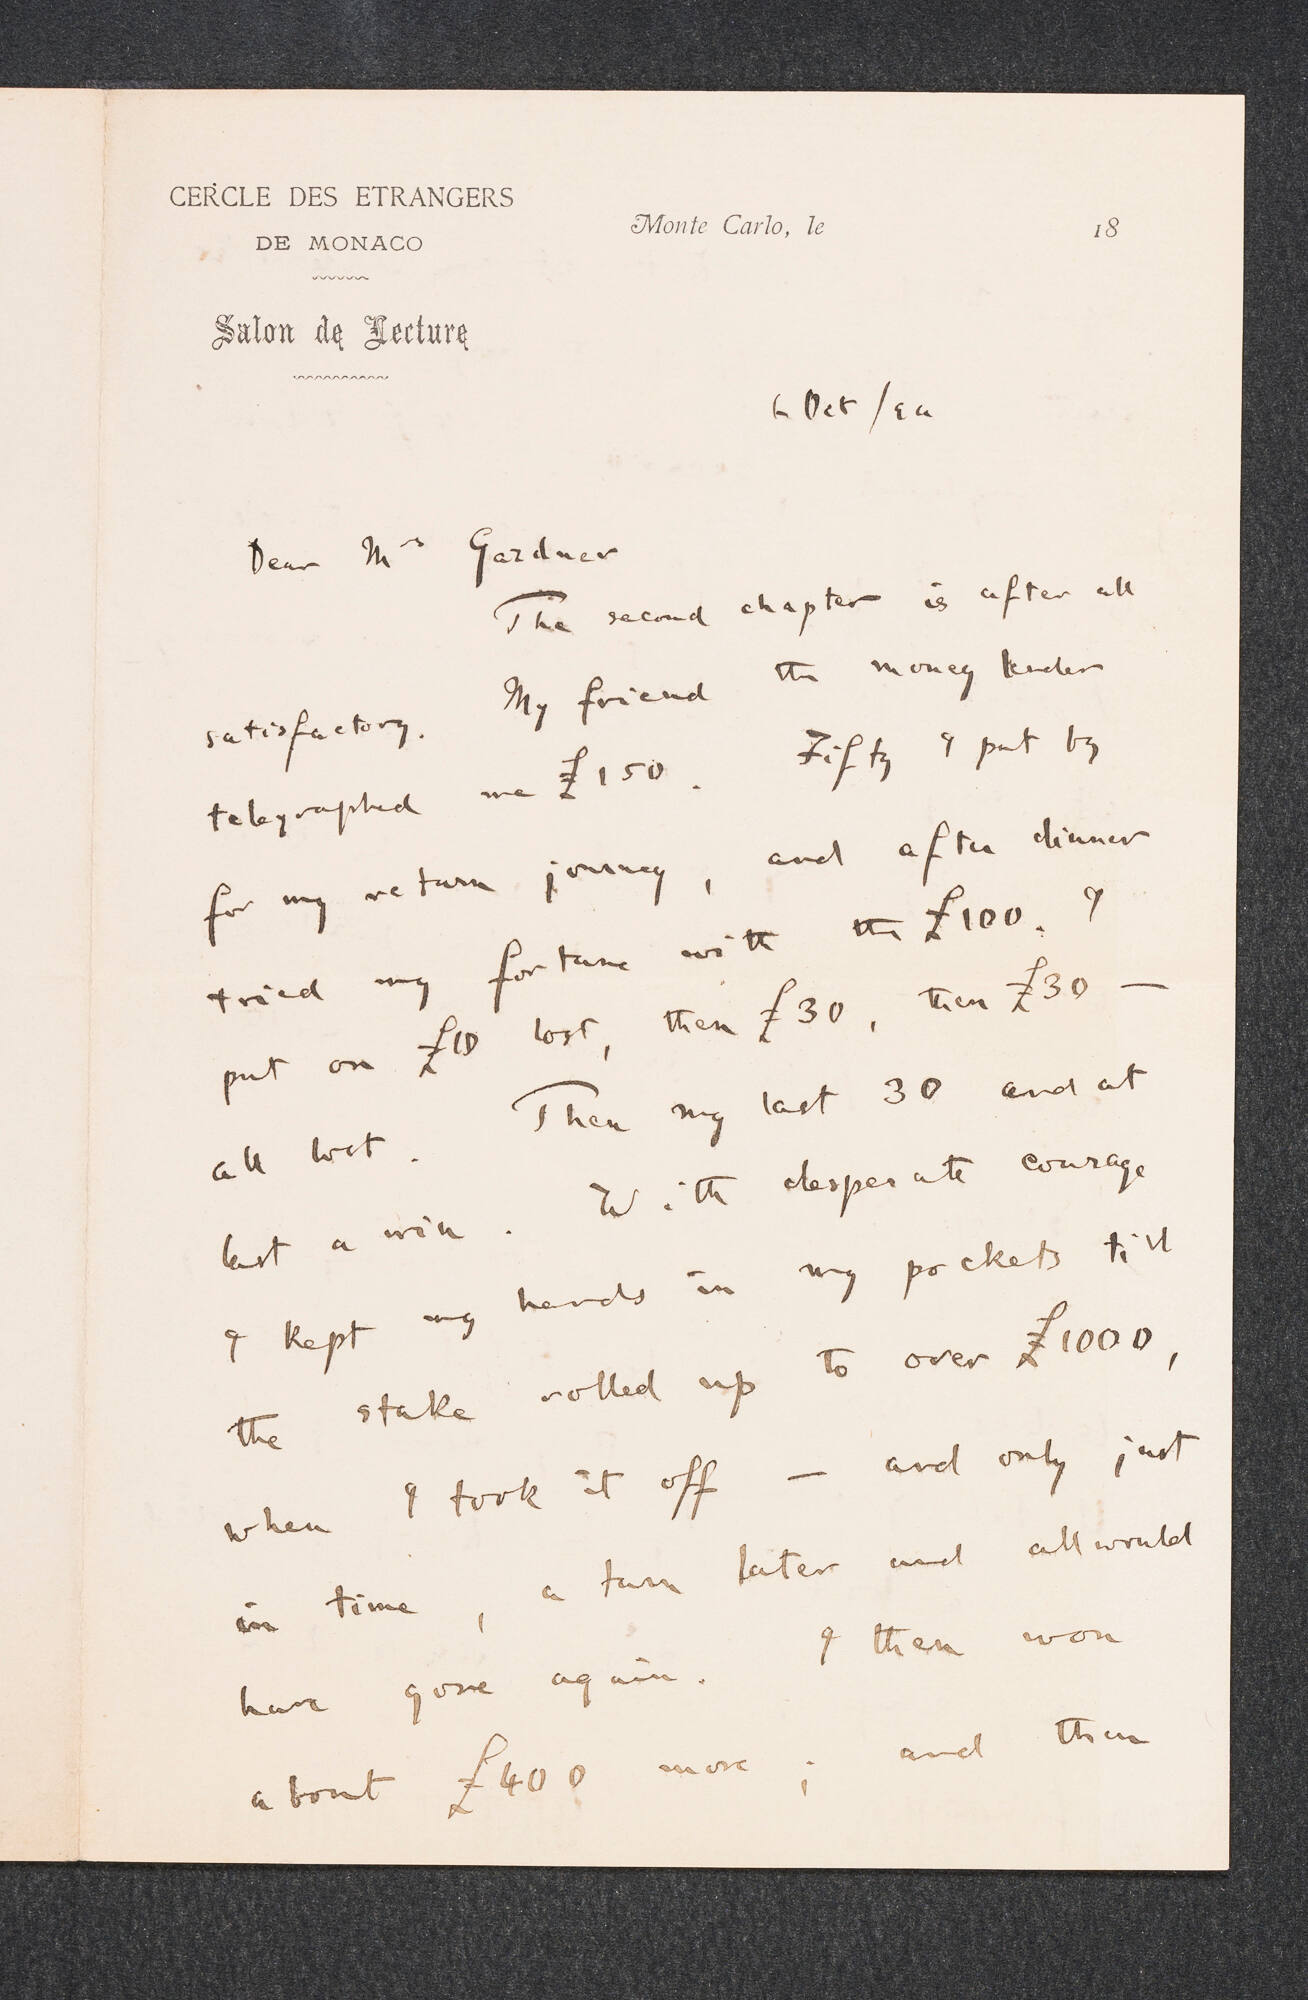 CERCLE DES ETRANGERS
DE MONACO
Salon de Lecture
Monte Carlo, le 18
6 Oct /90
Dear Mrs Gardner
The second chapter is after all
satisfactory. My friend the money lender
telegraphed me £150. Fifty I put by
for my return journey, and after dinner
tried my fortune with the £100. I
put on £10 lost, then £30, then £30 —
all lost. Then my last 30 and at
last a win. With desperate courage
I kept my hands in my pockets till
the stake rolled up to over £1000,
when I took it off — and only just
in time, a turn later and all would
have gone again. I then won
about £400 more; and then